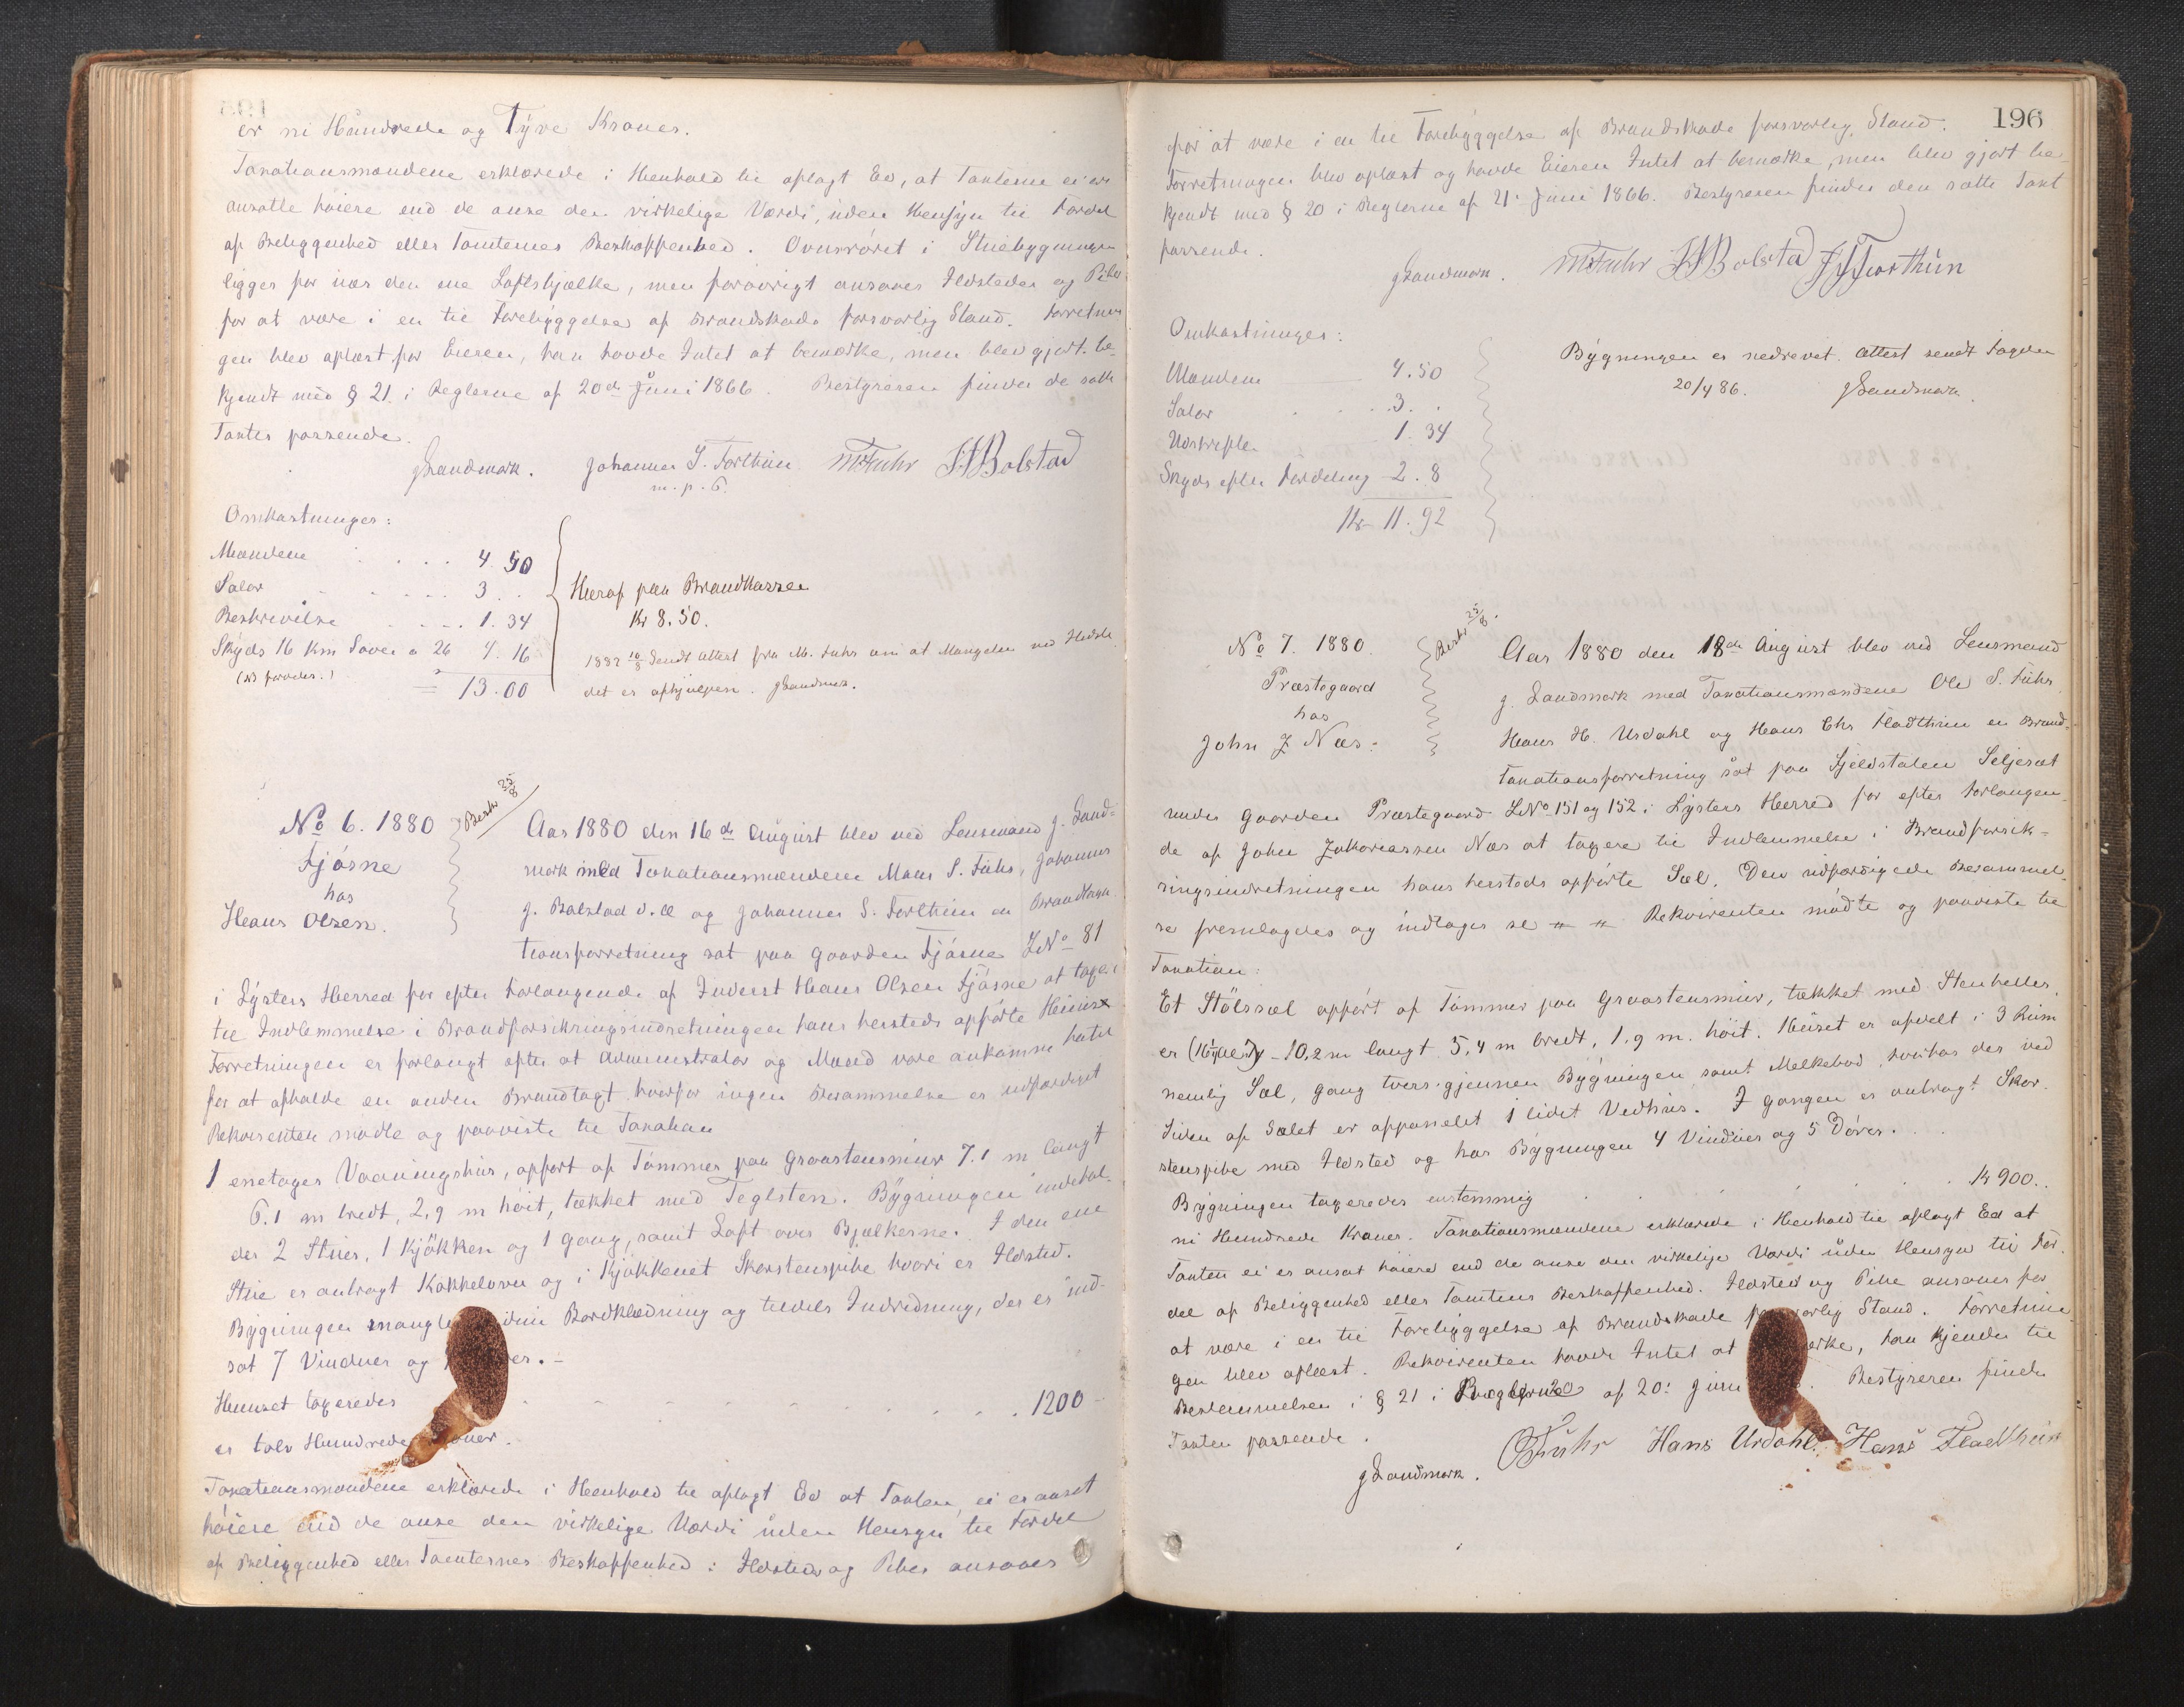 er ni Hundrede og Tyve Kroner.
Taxationsmændene erklærede i Henhold til aflagt Ed, at Taxterne ei ere
ansatte høiere end de anse den virkelige Værdi, uden Hensyn til Fordel
af Beliggenhed eller Tomternes Beskaffenhed. Ovnsrøret i Stuebygningen
ligger for nær den ene Loftsbjælke, men forøvrigt ansaaes Ildsteder og Piber
for at være i en til Forebyggelse af Brandskade forsvarlig Stand. Forretnin
gen blev oplæst for Eieren, han havde Intet at bemærke, men blev gjort be-
kjendt med § 21 i Reglerne af 20de Juni 1866. Bestyreren finder de satte
Taxter passende.
J Landmark. Johannes S. Forthun M S Fuhr J J Bolstad
m. p. P.
Omkostninger:
Mændene 4.50
Salær 3..
Beskrivelse 1.34
Skyds 16 Km Søvei a 26 4.16
= 13.00
Heraf paa Brandkassen
Kr 8.50.
1882 10/8 Sendt Attest fra M. Fuhr om at Mangelen ved Ildste
det er afhjulpen. J Landmark.
No 6. 1880
Fjøsne
hos
Hans Olsen.
Beskr 25/8
Aar 1880 den 16de August blev ved Lensmand J. Land-
mark med Taxationsmændene Mons S. Fuhr, Johannes
J. Bolstad d. æ og Johannes S. Forthun en Brandtaxa
tionsforretning sat paa Gaarden Fjøsne LNo 81
i Lysters Herred for efter Forlangende af Inderst Hans Olsen Fjøsne at tage
til Indlemmelse i Brandforsikringsindretningen hans hersteds opførte Huus
Forretningen er forlangt efter at Administrator og Mænd vare ankomne hertil
for at afholde en anden Brandtaxt hvorfor ingen Berammelse er udfærdiget
Rekvirenten mødte og paaviste til Taxation
1 enetages Vaaningshus, opført af Tømmer paa Graastensmuur 7.1 m langt
6.1 m bredt, 2.9 m høit, tækket med Teglsten. Bygningen indehol-
der 2 Stuer, 1 Kjøkken og 1 Gang, samt Loft over Bjælkerne. I den ene
Stue er anbragt Kakkelovn og i Kjøkkenet Skorstenspibe hvori er Ildsted.
Bygningen mangler Bordklædning og tildels Indredning, der er ind-
sat 7 Vinduer og
Huuset taxeredes 1200 -
er tolv Hundrede Kroner.
Taxationsmændene erklærede i Henhold til aflagt Ed at Taxten ei er ansat
høiere end de anse den virkelige Værdi uden Hensyn til Fordel
af Beliggenhed eller Tomternes Beskaffenhed: Ildsted og Piber ansaaes
196
for at være i en til Forebyggelse af Brandskade forsvarlig Stand.
Forretningen blev oplæst og havde Eieren Intet at bemærke, men blev gjort be-
kjendt med § 20 i Reglerne af 21. Juni 1866. Bestyreren finder den satte Taxt
passende.
J Landmark. M S Fuhr J J Bolstad J S Forthun
Omkostninger:
Mændene 4.50
Salær 3..
Udskrifter 1.34
Skyds efter Fordeling 2.8
Kr 11.92
Bygningen er nedrevet. Attest sendt Fogden
20/4 86. J Landmark.
No 7. 1880
Præstegaard
hos
John J Næs.
Beskr 25/8.
Aar 1880 den 18de August blev ved Lensmand
J. Landmark med Taxationsmændene Ole S. Fuhr
Hans H. Urdahl og Hans Chr Fladthun en Brand-
Taxationsforretning sat paa Fjeldstølen Seljesæt
under Gaarden Præstegaard LNo 151 og 152 i Lysters Herred for efter Forlangen-
de af John Zakariassen Næs at taxere til Indlemmelse i Brandforsik-
ringsindretningen hans hersteds opførte Sæl. Den udfærdigede Berammel-
se fremlagdes og indtages se " " Rekvirenten mødte og paaviste til
Taxation:
Et Stølssæl opført af Tømmer paa Graastensmuur, tækket med Stenheller,
er 10.2 m langt 5,4 m bredt, 1.9 m. høit. Huset er afdelt i 3 Rum
nemlig Sæl, Gang tvers igjennem Bygningen samt Melkebod, hvorhos der ved
Siden af Sælet er oppanelet 1 lidet Vedhus. I Gangen er anbragt Skor-
stenspibe med Ildsted og har Bygningen 4 Vinduer og 5 Døre.
Bygningen taxeredes enstemmig Kr 900..
ni Hundrede Kroner. Taxationsmændene erklærede i Henhold til aflagt Ed at
Taxten ei er ansat høiere end de anse den virkelige Værdi uden Hensyn til For-
del af Beliggenhed eller Tomtens Beskaffenhed. Ildsted og Pibe ansaaes for
at være i en til Forebyggelse af Brandskade forsvarlig Stand. Forretnin
gen blev oplæst. Rekvirenten havde Intet at bemærke, han kjender til
Bestemmelsen i § 21 i Reglerne af 20: Juni Bestyreren finder
Taxten passende.
J Landmark. O S Fuhr Hans Urdahl. Hans Fladthun